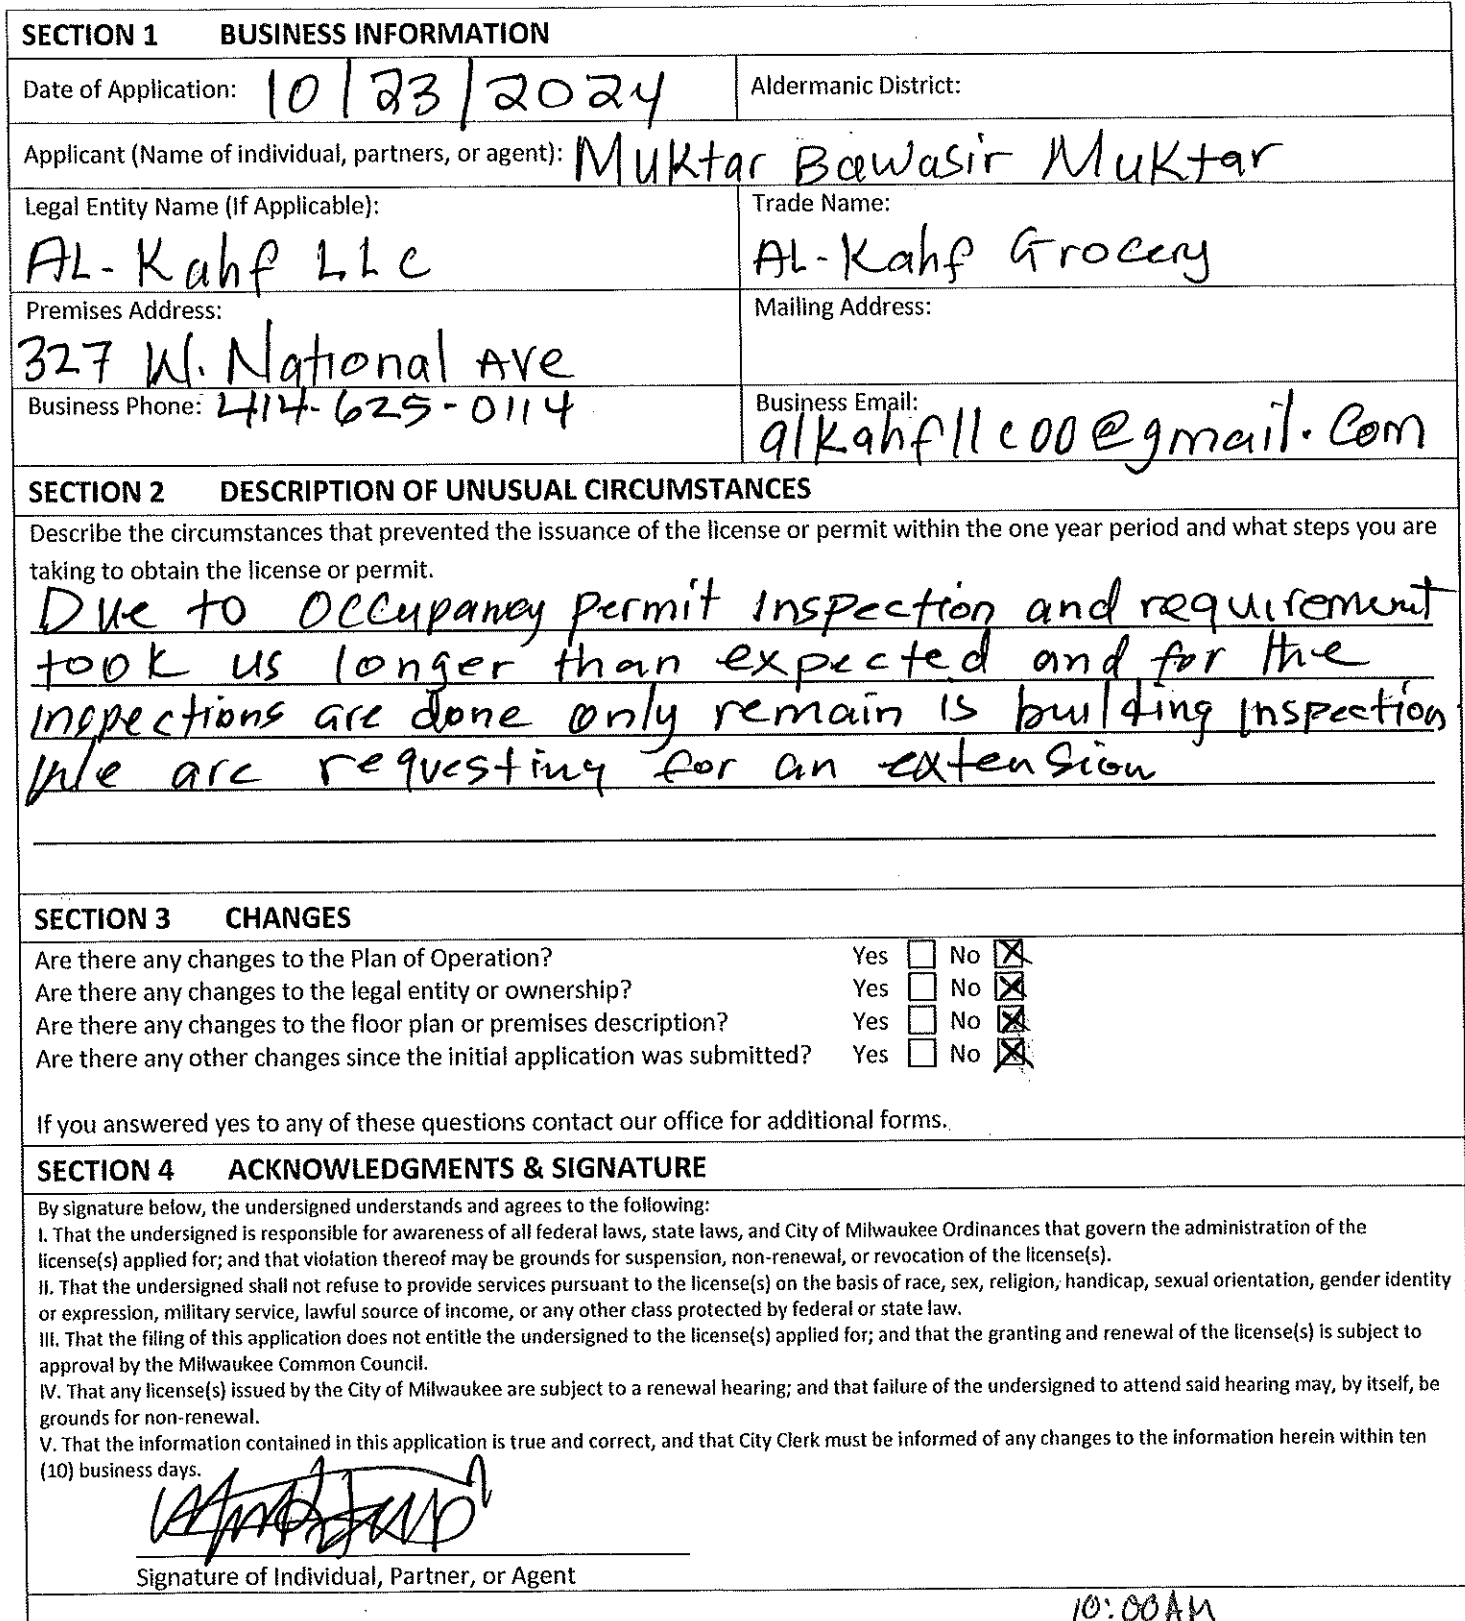 SECTION 1 BUSINESS INFORMATION
Date of Application: 10/23/2024 Aldermanic District:
Applicant (Name of individual, partners, or agent): Muktar Bawasir Muktar
Legal Entity Name (If Applicable): Trade Name:
AL-Kahf LLC AL-Kahf Grocery
Premises Address: Mailing Address:
327 W. National Ave
Business Phone: 414-625-0114 Business Email:
alkahfllc00@gmail.com
SECTION 2 DESCRIPTION OF UNUSUAL CIRCUMSTANCES
Describe the circumstances that prevented the issuance of the license or permit within the one year period and what steps you are
taking to obtain the license or permit.
Due to Occupancy permit Inspection and requirement
took us longer than expected and for the
inspections are done only remain is building Inspection
We are requesting for an extension
SECTION 3 CHANGES
Are there any changes to the Plan of Operation? Yes ☐ No ☒
Are there any changes to the legal entity or ownership? Yes ☐ No ☒
Are there any changes to the floor plan or premises description? Yes ☐ No ☒
Are there any other changes since the initial application was submitted? Yes ☐ No ☒
If you answered yes to any of these questions contact our office for additional forms.
SECTION 4 ACKNOWLEDGMENTS & SIGNATURE
By signature below, the undersigned understands and agrees to the following:
I. That the undersigned is responsible for awareness of all federal laws, state laws, and City of Milwaukee Ordinances that govern the administration of the
license(s) applied for; and that violation thereof may be grounds for suspension, non-renewal, or revocation of the license(s).
II. That the undersigned shall not refuse to provide services pursuant to the license(s) on the basis of race, sex, religion, handicap, sexual orientation, gender identity
or expression, military service, lawful source of income, or any other class protected by federal or state law.
III. That the filing of this application does not entitle the undersigned to the license(s) applied for; and that the granting and renewal of the license(s) is subject to
approval by the Milwaukee Common Council.
IV. That any license(s) issued by the City of Milwaukee are subject to a renewal hearing; and that failure of the undersigned to attend said hearing may, by itself, be
grounds for non-renewal.
V. That the information contained in this application is true and correct, and that City Clerk must be informed of any changes to the information herein within ten
(10) business days.
Signature of Individual, Partner, or Agent
10:00AM